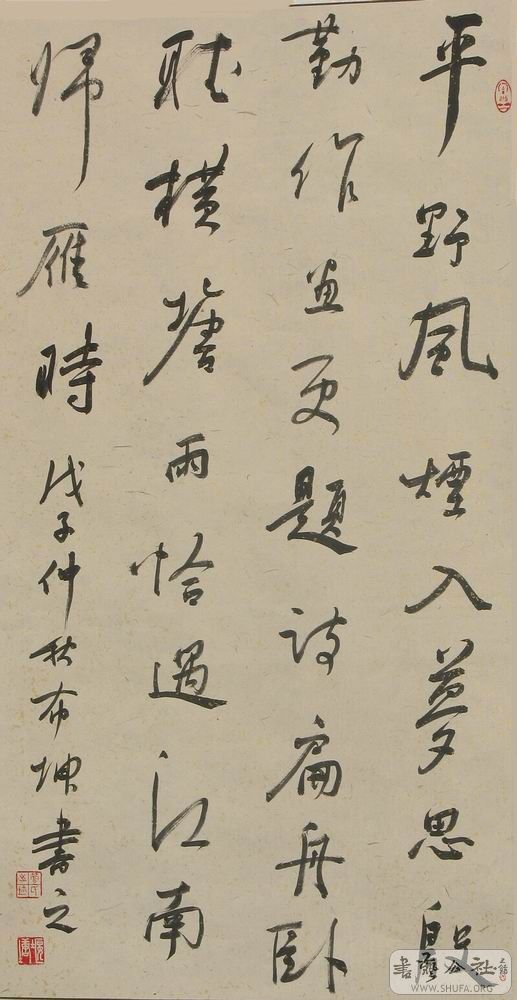 平野風煙入夢思殷
勤作畫更題詩扁舟臥
聽橫塘雨恰遇江南
歸雁時
戊子仲秋布坤書之
書藝公社
WWW.SHUFA.ORG